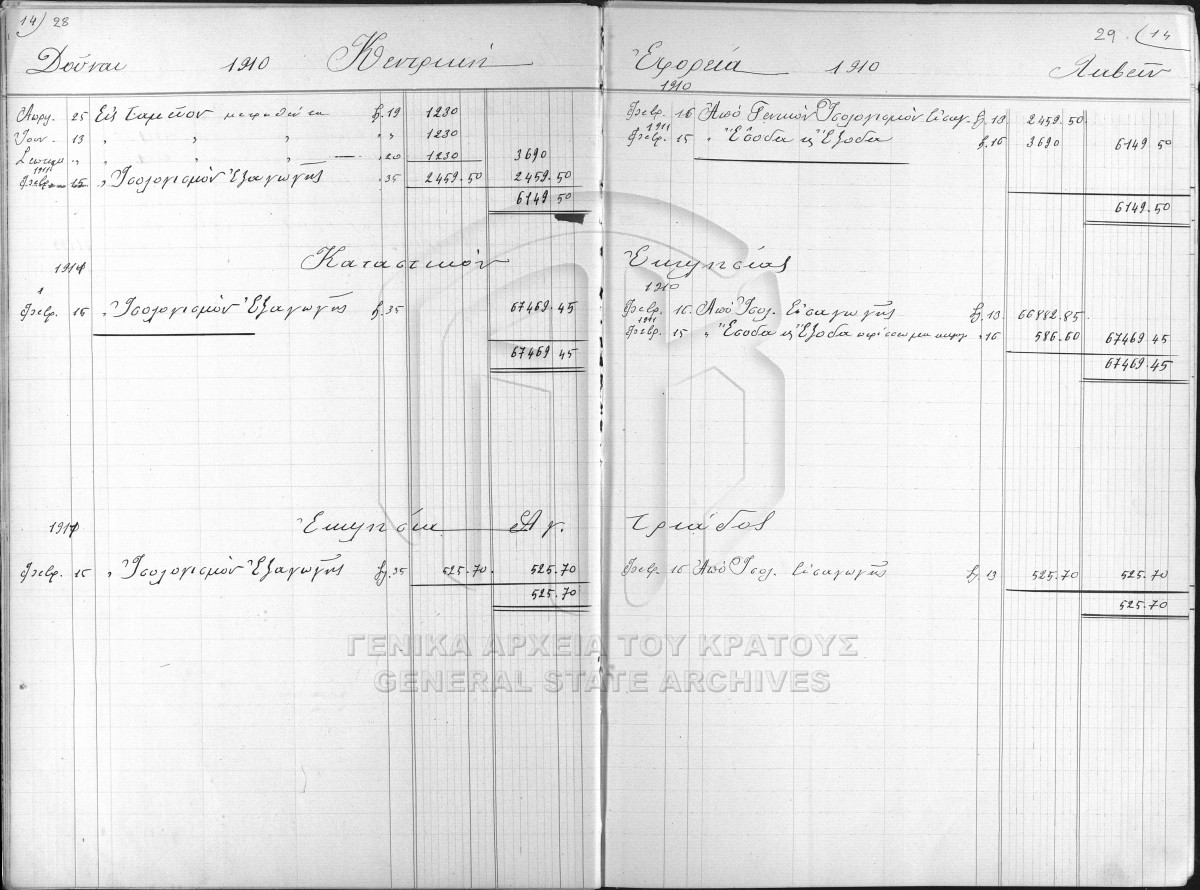 14) 28
Δοῦναι 1910 Κεντρική
Απρ. 25 Εἰς Ταμεῖον μετρηθέντα f. 19 1230
Ιουν. 13 " " " " " 1230
Σεπτεμ " " " " — " 20 1230 3690
1911
Φεβρ. 15 " Ἰσολογισμὸν Ἐξαγωγῆς " 35 2459.50 2459.50
6149.50
1911 Καταστικὸν
1
Φεβρ. 15 " Ἰσολογισμὸν Ἐξαγωγῆς f. 35 67469.45
67469.45
1911 Ἐκκλησία Ἁγ.
Φεβρ. 15 " Ἰσολογισμὸν Ἐξαγωγῆς f. 35 525.70 525.70
525.70
29. (14
Ἐφορεία 1910 Λαβεῖν
1910
Φεβρ. 16 Ἀπὸ Γενικὸν Ἰσολογισμὸν Εἰσαγ. f. 13 2459.50
1911
Φεβρ. 15 " Ἔσοδα κ Ἔξοδα f. 16 3690 6149 50
6149.50
Ἐκκλησίας
1910
Φεβρ. 16 Ἀπὸ Ἰσολ. Εἰσαγωγῆς f. 13 66882.85
1911
Φεβρ. 15 " Ἔσοδα κ Ἔξοδα " 16 586.60 67469 45
67469.45
Τριάδος
Φεβρ 16 Ἀπὸ Ἰσολ. Εἰσαγωγῆς f. 13 525.70 525.70
525.70
ΓΕΝΙΚΑ ΑΡΧΕΙΑ ΤΟΥ ΚΡΑΤΟΥΣ
GENERAL STATE ARCHIVES